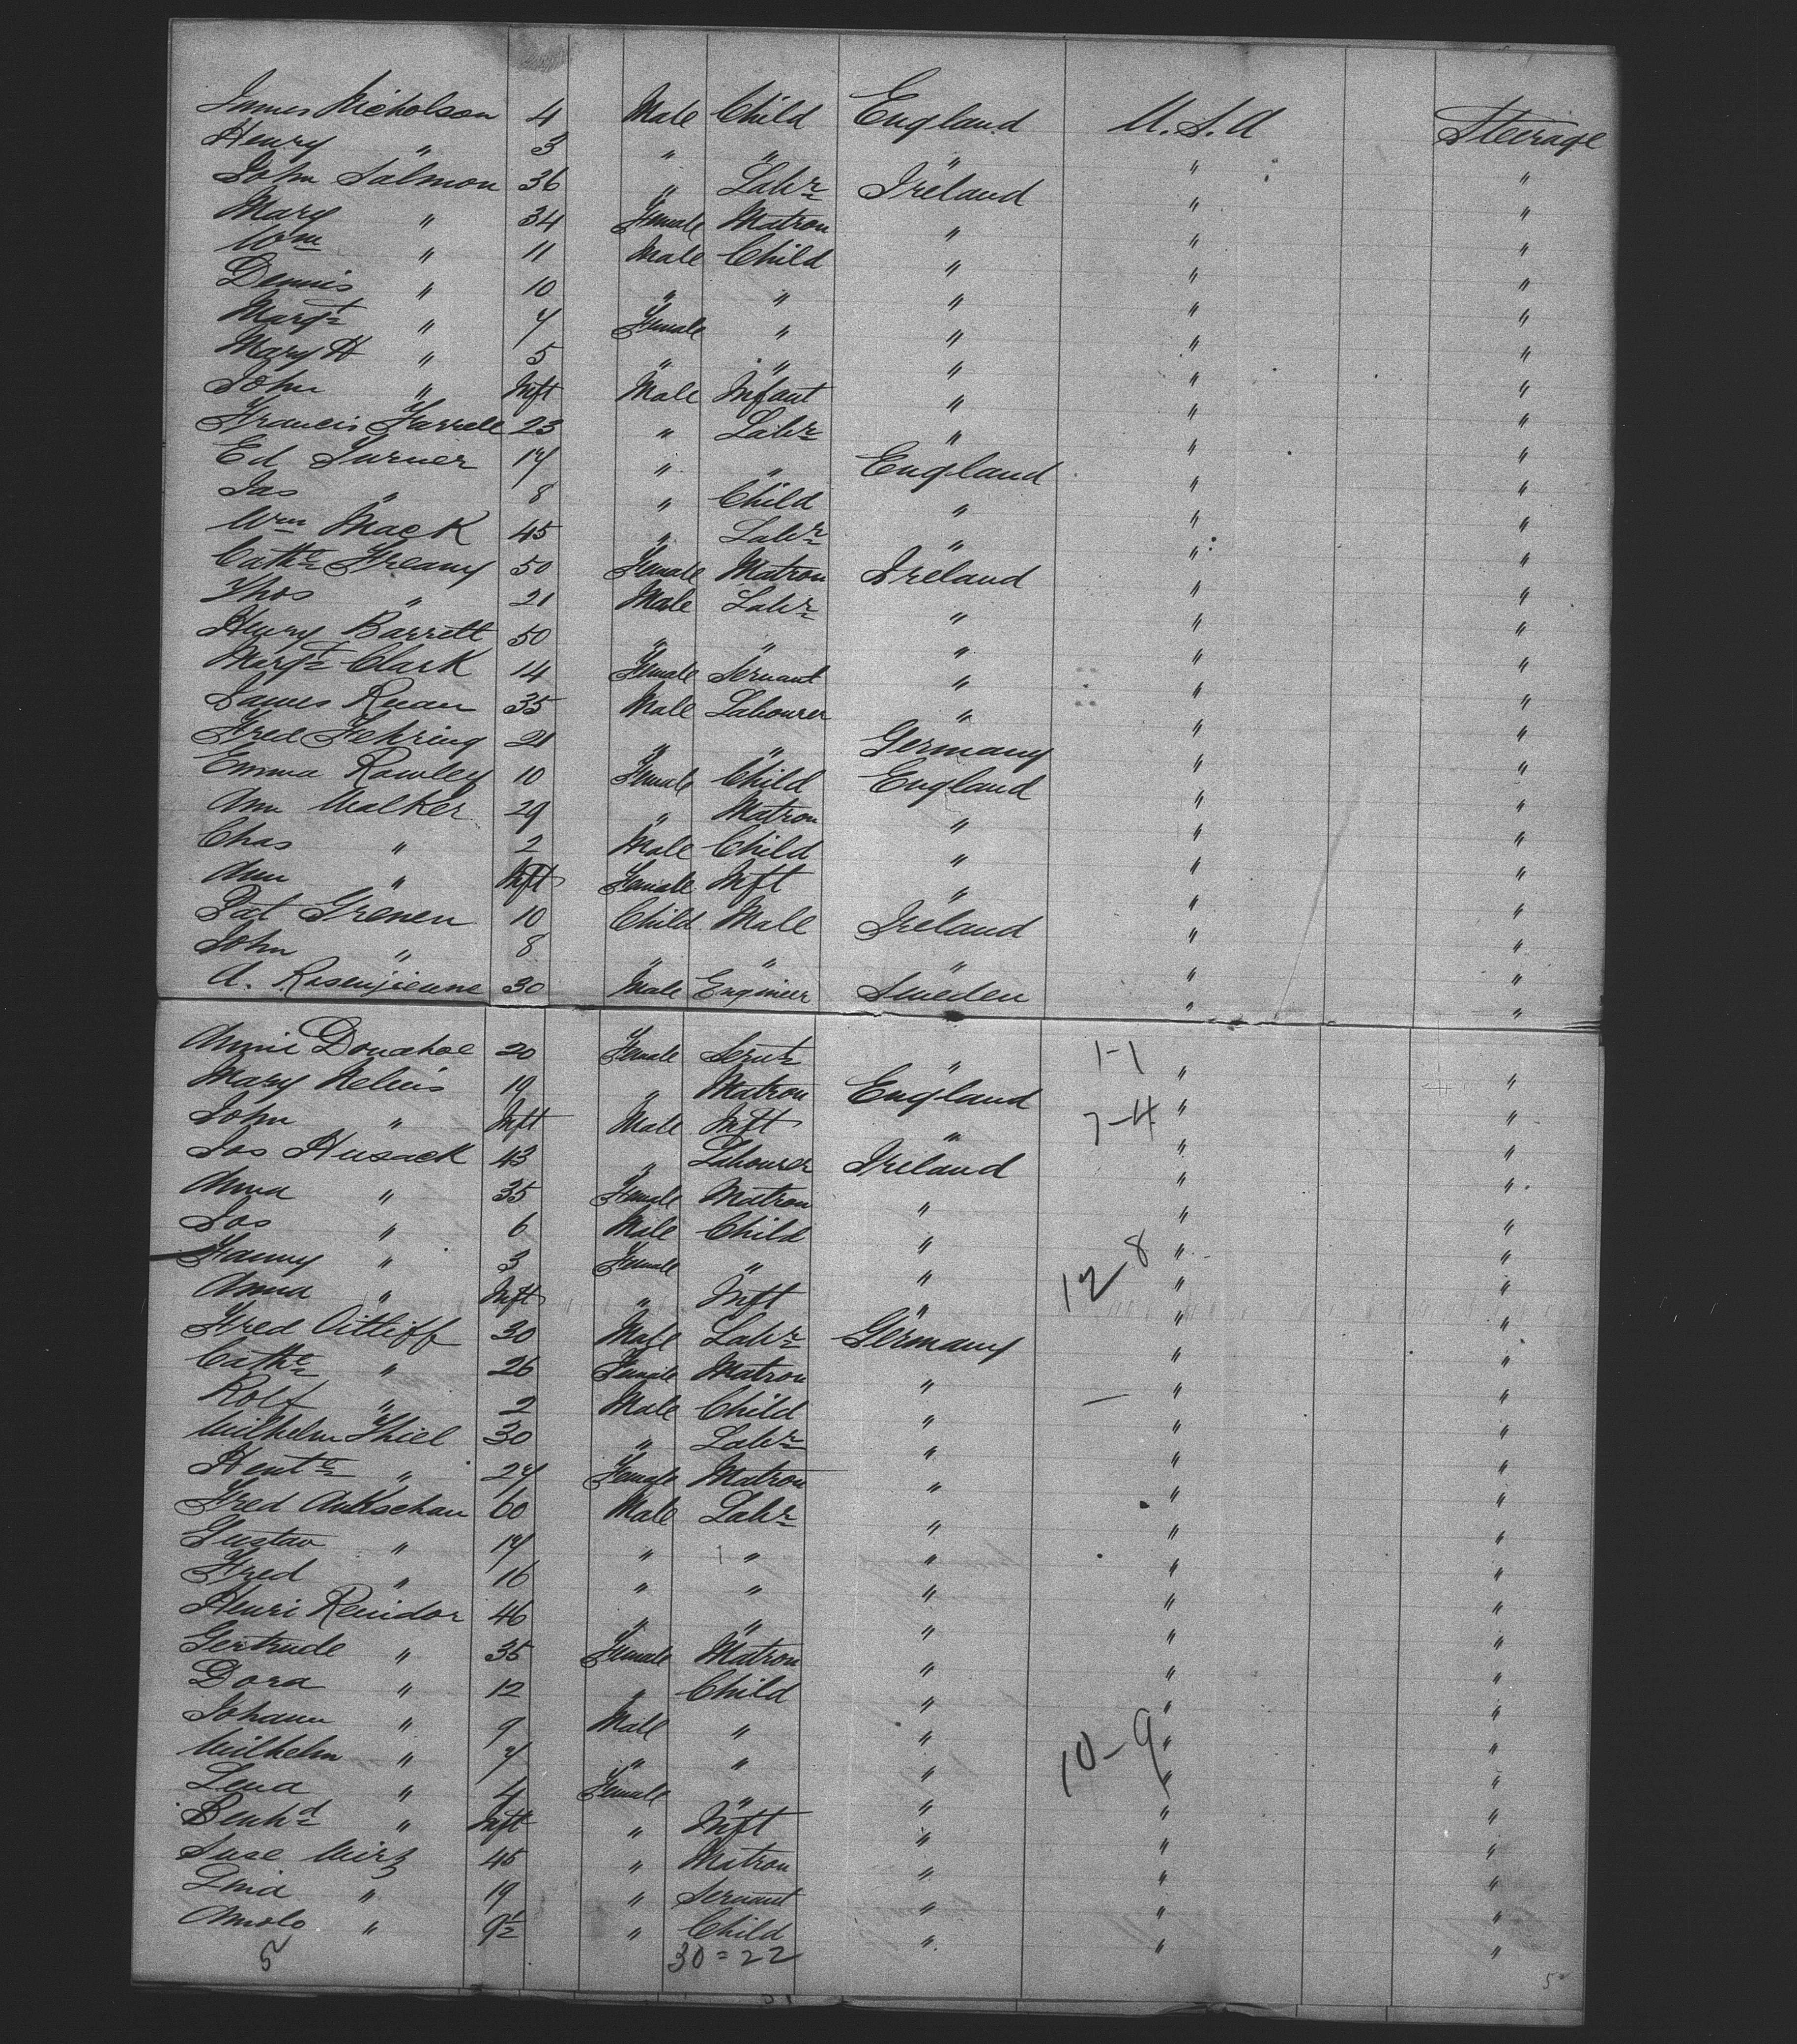 James Nicholson 4 Male Child England U.S.A Steerage
Henry " 3 " " " " "
John Salmon 36 " Labr Ireland " "
Mary " 34 Female Matron " " "
Wm " 11 Male Child " " "
Dennis " 10 " " " " "
Margt " 7 Female " " " "
Mary H " 5 " " " " "
John " Inft Male Infant " " "
Francis Farrell 23 " Labr " " "
Ed Turner 17 " " England " "
Jas " 8 " Child " " "
Wm Mack 45 " Labr " " "
Cathe Greany 50 Female Matron Ireland " "
Thos " 21 Male Labr " " "
Henry Barrett 50 " " " " "
Margt Clark 14 Female Servant " " "
James Ruan 35 Male Labourer " " "
Fred Fehring 21 " " Germany " "
Emma Rowley 10 Female Child England " "
Ann Walker 29 " Matron " " "
Chas " 2 Male Child " " "
Ann " Inft Female Inft " " "
Pat Grenen 10 Child Male Ireland " "
John " 8 " " " " "
A. 30 Male Engineer Sweden " "
Annie Donahoe 20 Female Servt " 1-1 " "
Mary 19 " Matron England " "
John " Inft Male Inft " 7-4 " "
Jos Husack 43 " Labourer Ireland " "
Anna " 35 Female Matron " " "
Jos " 6 Male Child " " "
Fanny " 3 Female " " 12 8 " "
Anna " Inft " Inft " " "
Fred 30 Male Labr Germany " "
Cathe " 26 Female Matron " " "
Rolf " 2 Male Child " " "
Wilhelm Thiel 30 " Labr " " "
Hente " 27 Female Matron " " "
Fred Aukschau 60 Male Labr " " "
Gustav " 17 " " " " "
Fred " 16 " " " " "
Henri Renidor 46 " " " " "
Gertrude " 35 Female Matron " " "
Dora " 12 " Child " " "
Johann " 9 Male " " " "
Wilhelm " 7 " " " 10-9 " "
Lena " 4 Female " " " "
Benhd " Inft " Inft " " "
Suse Wirz 45 " Matron " " "
Lina " 19 " Servant " " "
" 9½ " Child " " "
5 30=22 5